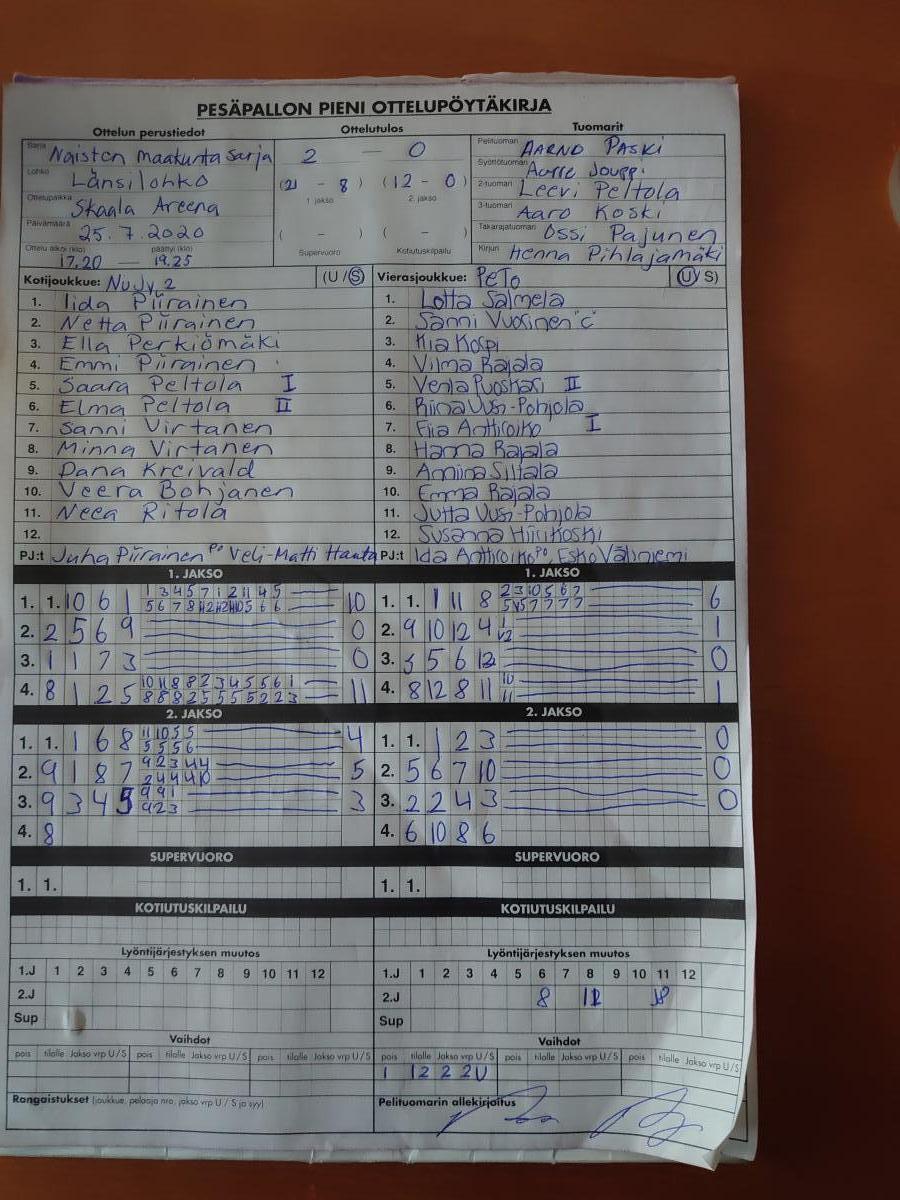 PESÄPALLON PIENI OTTELUPÖYTÄKIRJA
Ottelun perustiedot
Sarja Naisten maakuntasarja
Lohko Länsilohko
Ottelupaikka Skaala Areena
Päivämäärä 25.7.2020
Ottelu alkoi (klo) päättyi (klo)
17.20 — 19.25
Ottelutulos
2 — 0
(21 - 8) (12 - 0)
1. jakso 2. jakso
( - ) ( - )
Supervuoro Kotiutuskilpailu
Tuomarit
Pelituomari AARNO PASKI
Syöttötuomari
2-tuomari Leevi Peltola
3-tuomari Aaro Koski
Takarajatuomari Ossi Pajunen
Kirjuri Henna Pihlajamäki
Kotijoukkue: NuJy 2 (U/S)
1. Iida Piirainen
2. Netta Piirainen
3. Ella Perkiömäki
4. Emmi Piirainen
5. Saara Peltola I
6. Elma Peltola II
7. Sanni Virtanen
8. Minna Virtanen
9. Dana Kreivald
10. Veera Bohjanen
11. Neea Ritola
12.
PJ:t Juha Piirainen PO Veli-Matti Hauta
Vierasjoukkue: PeTo (U/S)
1. Lotta Salmela
2. Sanni Vuorinen "C"
3. Kia Kospi
4. Vilma Rajala
5. Venla Ruoskari II
6. Riina Uusi-Pohjola
7. Fiia Anttiroiko I
8. Hanna Rajala
9. Anniina Siltala
10. Emma Rajala
11. Jutta Uusi-Pohjola
12. Susanna Hirikoski
PJ:t Ida Anttiroiko PO, Esko Väliniemi
1. JAKSO
1. 1. 10 6 1 1 3 4 5 7 1 2 11 4 5 10
2. 2 5 6 9 0
3. 1 1 7 3 0
4. 8 1 2 5 10 11 8 8 2 3 4 5 5 6 1 11
8 8 8 2 5 5 5 5 2 2 3
1. JAKSO
1. 1. 1 11 8 2 3 10 5 6 7 6
2. 9 10 12 4 1
3. 3 5 6 12 0
4. 8 12 8 11 10 1
11
2. JAKSO
1. 1. 1 6 8 11 10 5 5 4
5 5 5 6
2. 9 1 8 7 9 2 3 4 4 5
2 4 4 4 10
3. 9 3 4 5 9 9 1 3
9 2 3
4. 8
2. JAKSO
1. 1. 1 2 3 0
2. 5 6 7 10 0
3. 2 2 4 3 0
4. 6 10 8 6
SUPERVUORO
1. 1.
SUPERVUORO
1. 1.
KOTIUTUSKILPAILU
KOTIUTUSKILPAILU
Lyöntijärjestyksen muutos
1.J 1 2 3 4 5 6 7 8 9 10 11 12
2.J
Sup
Lyöntijärjestyksen muutos
1.J 1 2 3 4 5 6 7 8 9 10 11 12
2.J 8
Sup
Vaihdot
pois tilalle Jakso vrp U/S pois tilalle Jakso vrp U/S pois tilalle Jakso vrp U/S
Vaihdot
pois tilalle Jakso vrp U/S pois tilalle Jakso vrp U/S pois tilalle Jakso vrp U/S
1 12 2 2U
Rangaistukset (joukkue, pelaaja nro, jakso vrp U / S ja syy)
Pelituomarin allekirjoitus